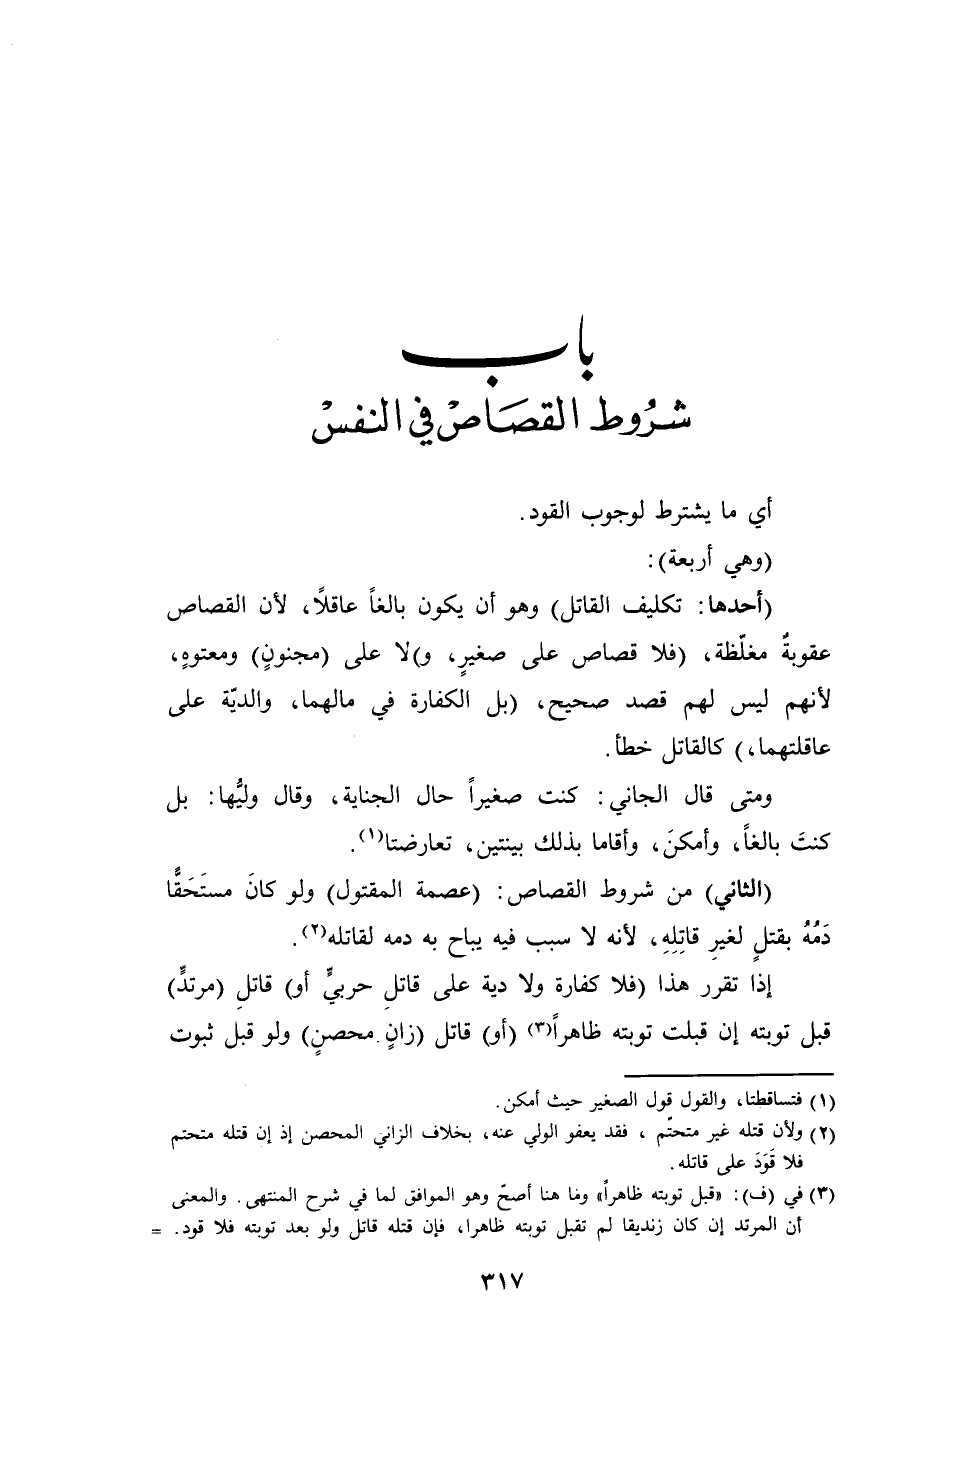 باب
شرُوط القصَاصْ في النفسْ
أي ما يشترط لوجوب القود.
(وهي أربعة):
(أحدها: تكليف القاتل) وهو أن يكون بالغاً عاقلًا، لأن القصاص
عقوبةٌ مغلّظة، (فلا قصاص على صغيرٍ، و)لا على (مجنونٍ) ومعتوهٍ،
لأنهم ليس لهم قصد صحيح، (بل الكفارة في مالهما، والديّة على
عاقلتهما،) كالقاتل خطأ.
ومتى قال الجاني: كنت صغيراً حال الجناية، وقال وليُّها: بل
كنتَ بالغاً، وأمكنَ، وأقاما بذلك بينتين، تعارضتا(١).
(الثاني) من شروط القصاص: (عصمة المقتول) ولو كانَ مستَحَقًّا
دَمُهُ بقتلٍ لغيرِ قاتِلِهِ، لأنه لا سبب فيه يباح به دمه لقاتله(٢).
إذا تقرر هذا (فلا كفارة ولا دية على قاتلِ حربيٍّ أو) قاتلِ (مرتدٍّ)
قبل توبته إن قبلت توبته ظاهراً(٣) (أو) قاتل (زانٍ محصنٍ) ولو قبل ثبوت
(١) فتساقطتا، والقول قول الصغير حيث أمكن.
(٢) ولأن قتله غير متحتّم ، فقد يعفو الولي عنه، بخلاف الزاني المحصن إذ إن قتله متحتم
فلا قَوَدَ على قاتله.
(٣) في (ف): «قبل توبته ظاهراً» وما هنا أصحّ وهو الموافق لما في شرح المنتهى. والمعنى
أن المرتد إن كان زنديقا لم تقبل توبته ظاهرا، فإن قتله قاتل ولو بعد توبته فلا قود. =
٣١٧